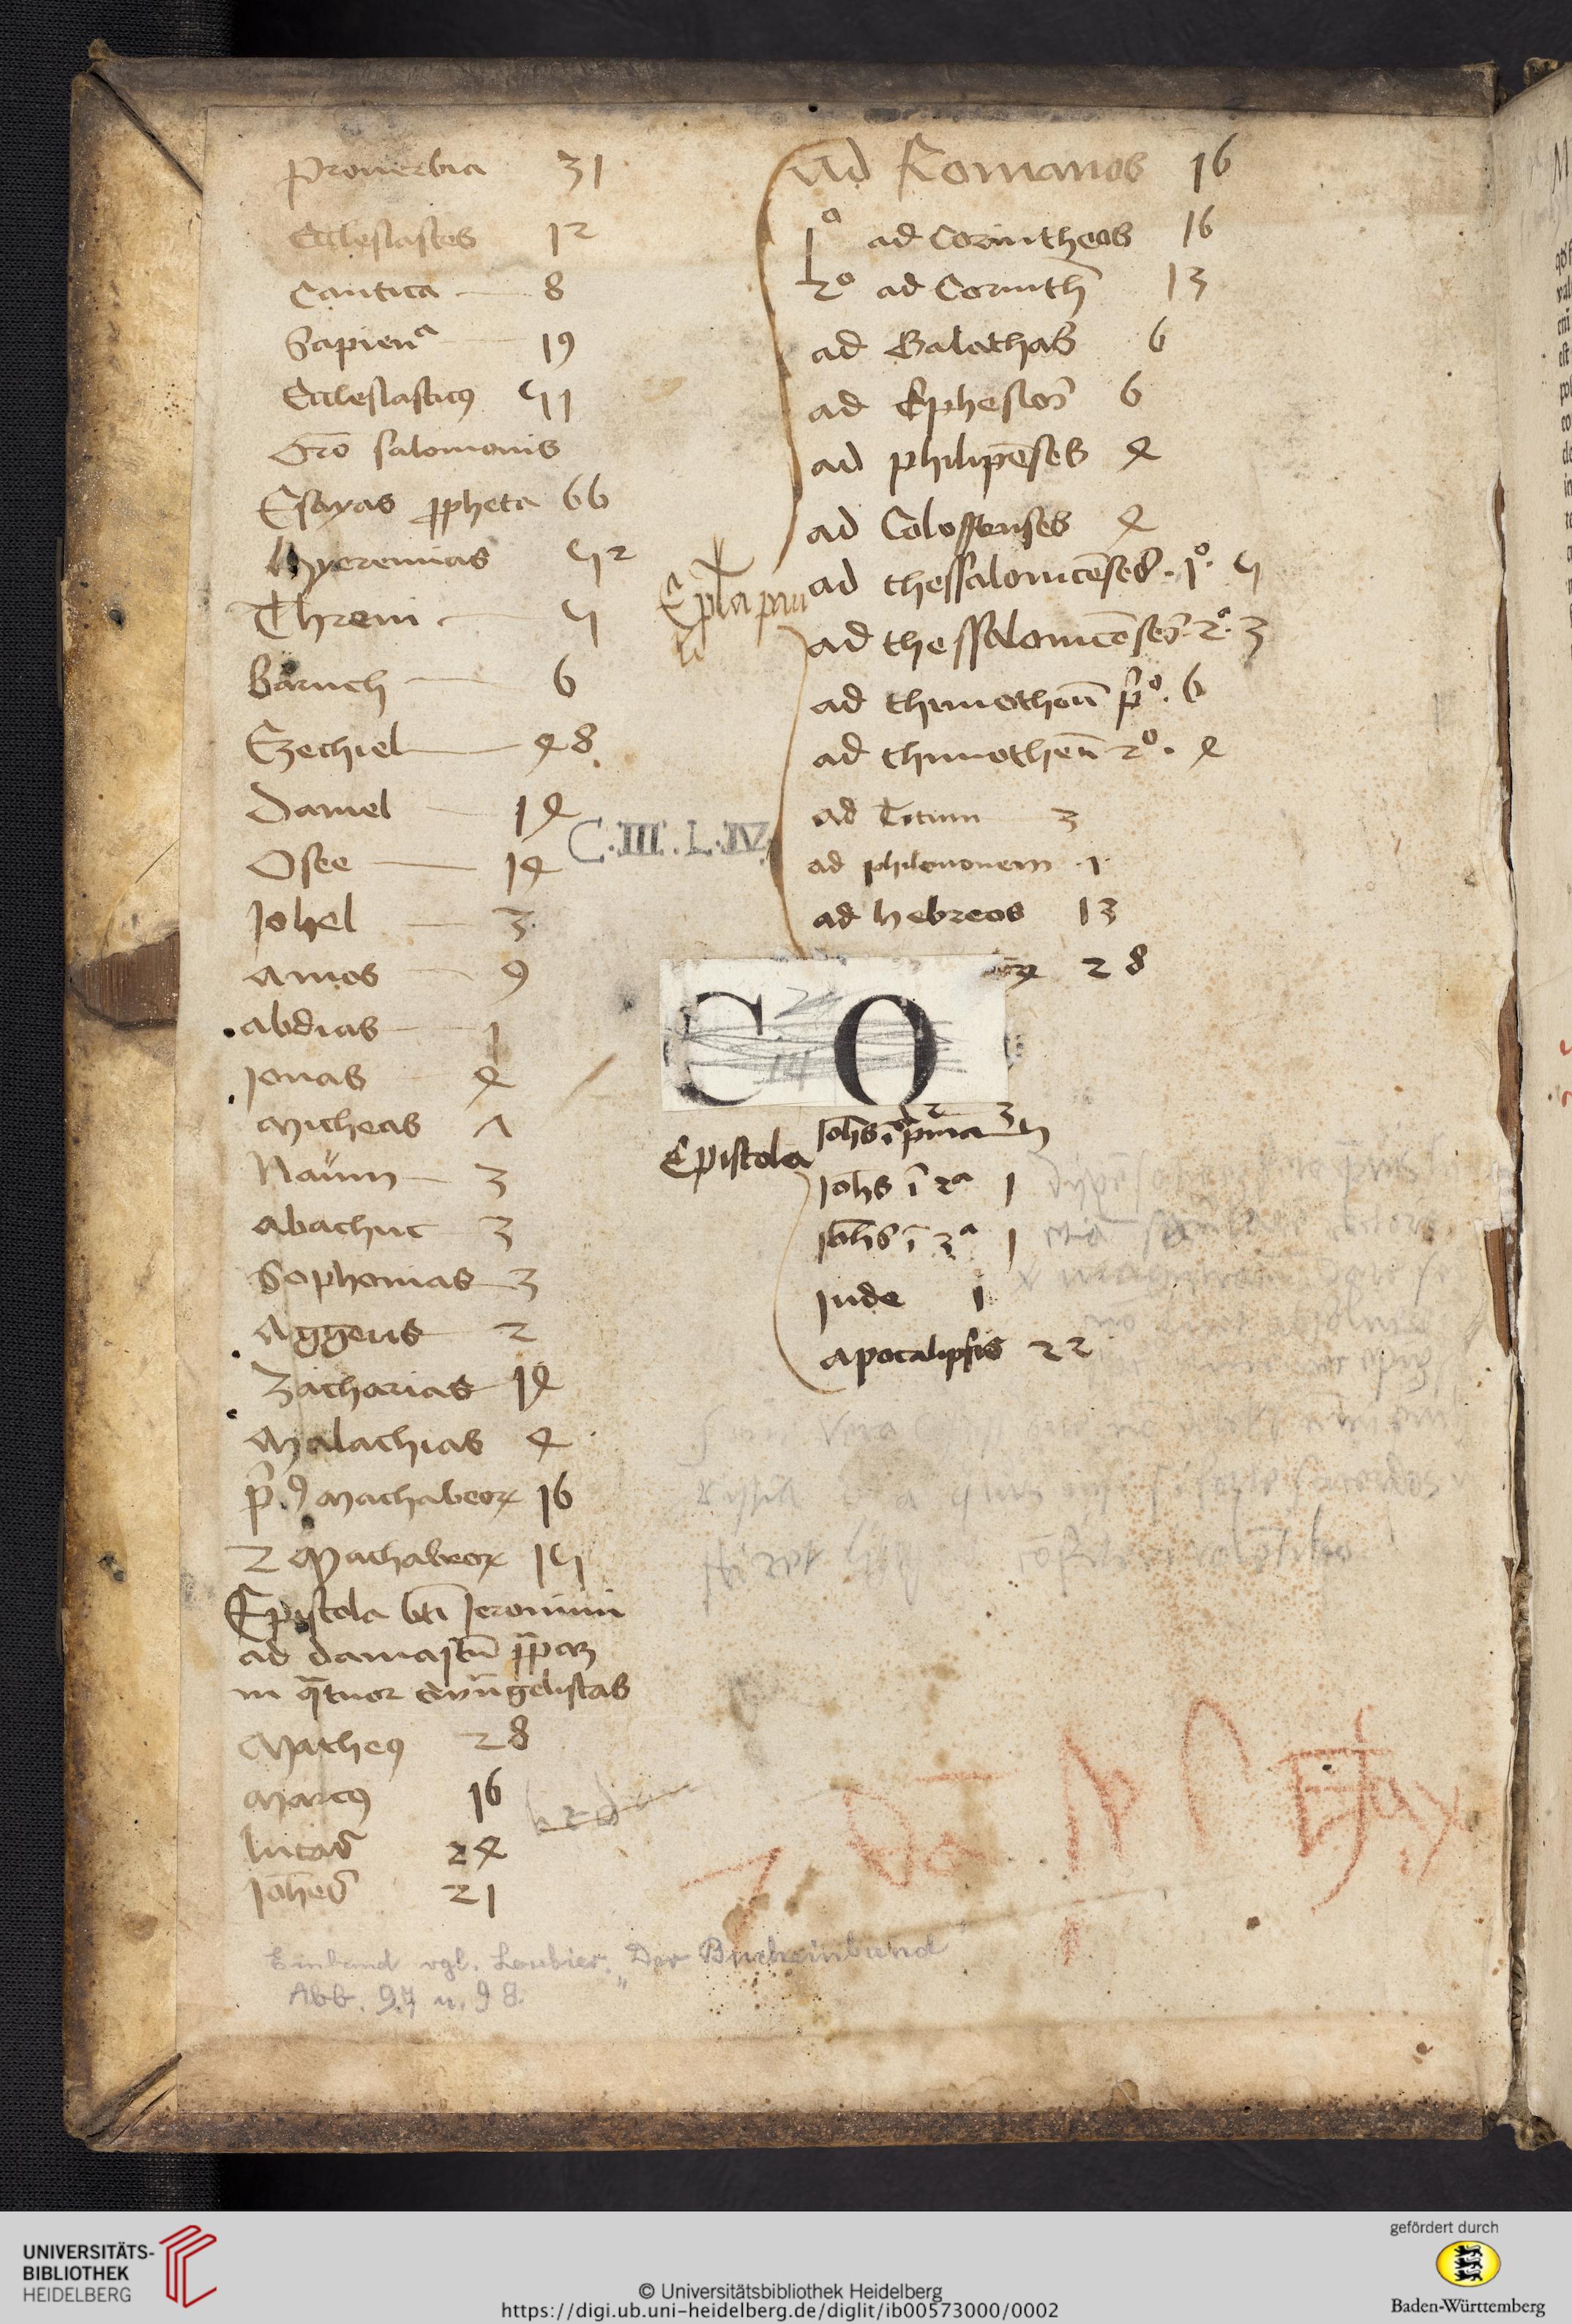 Prouerbia 31
Ecclesiastes 12
Cantica 8
Sapienᵃ 19
Ecclesiasticꝰ 51
Oro salomonis
Esayas ꝓpheta 66
Hyeremias 52
Threni 5
Baruch 6
Ezechiel 48
Daniel 14
Osee 14
Johel 3
Amos 9
Abdias 1
Jonas 4
Micheas 7
Naum 3
Abachuc 3
Sophonias 3
Aggeus 2
Zacharias 14
Malachias 4
p̄. Machabeoꝝ 16
2 Machabeoꝝ 15
Epistola bti Jeronimi
ad damasū ppaz
in qtuor evāgelistas
Matheꝯ 28
Marcꝯ 16
lucas 24
Johēs 21
Einband vgl. Loubier, "Der Bucheinband
Abb. 97 u. 98.
C.III.L.IV.
Epla pau
li
ad Romanos 16
1º ad Corintheos 16
2º ad Corinth 13
ad Galathas 6
ad Ephesios 6
ad philipēses 4
ad Colossenses 4
ad thessalonicēses . 1º. 5
ad thessalonicēses 2º. 3
ad thimotheū pº. 6
ad thimotheū 2º. 4
ad Titum 3
ad philemonem 1
ad hebreos 13
oꝝ 28
C O
Epistola
Johis ī pma 5
Johis ī 2ª 1
Johis ī 3ª 1
Jude 1
Apocalipsis 22
UNIVERSITÄTS-
BIBLIOTHEK
HEIDELBERG
© Universitätsbibliothek Heidelberg
https://digi.ub.uni-heidelberg.de/diglit/ib00573000/0002
gefördert durch
Baden-Württemberg